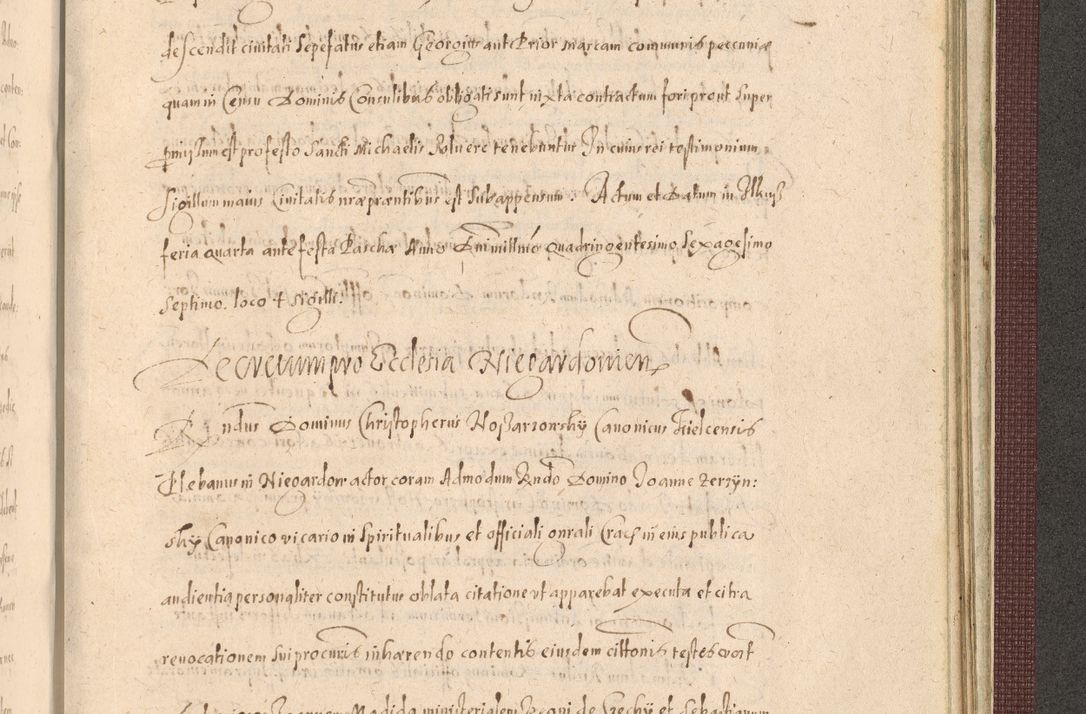 descendit civitati Sepefatus etiam Georgius ant Prior marcam communis pecuniæ
quam in Censu Dominis Consulibus obligati sunt iuxta contractum fori prout super
pmissum est pro festo Sancti Michaelis Solvere tenebuntur In cuius rei testimonium
Sigillum maius Civitatis nræ præntibus est Subappensum. Actum et Datum in Ilkusz
feria quarta ante festa Paschæ Anno Dni millmo Quadringentesimo Sexagesimo
Septimo. loco + sigilli.
Decretum pro Ecclesia Niegardovien
Rndus Dominus Christopherus Kielcensis Canonicus
Plebanus in Niegardow actor coram Admodum Rndo Domino Joanne Zerzyn:
sky Canonico vicario in Spiritualibus et officiali gnrali Crac in eius publica
audientia personaliter constitutus oblata citatione ut apparebat executa et citra
revocationem Sui procuris inhærendo contentis eiusdem citationis testes
Madida ministerialem de et Sebastianum